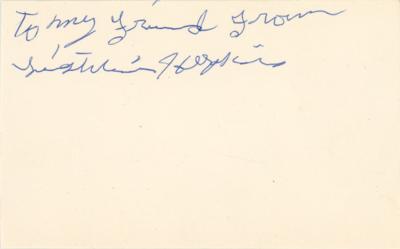 To my Friend From
Lightnin Hopkins